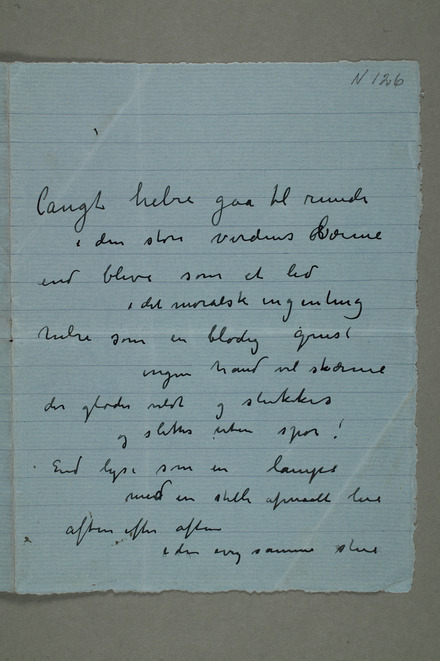 N 126
Langt hel​re gaa til runde
i den store verdens Værme
end blive som et led
i det moralsk ingenting
helre som en blodig gnist
ingen haand vil skærme
der gløder vildt og slukkes
og slettes uden spor!
End lyse som en lampe
med en stille afmaalt lue
aften efter aften
i den evig samme stue